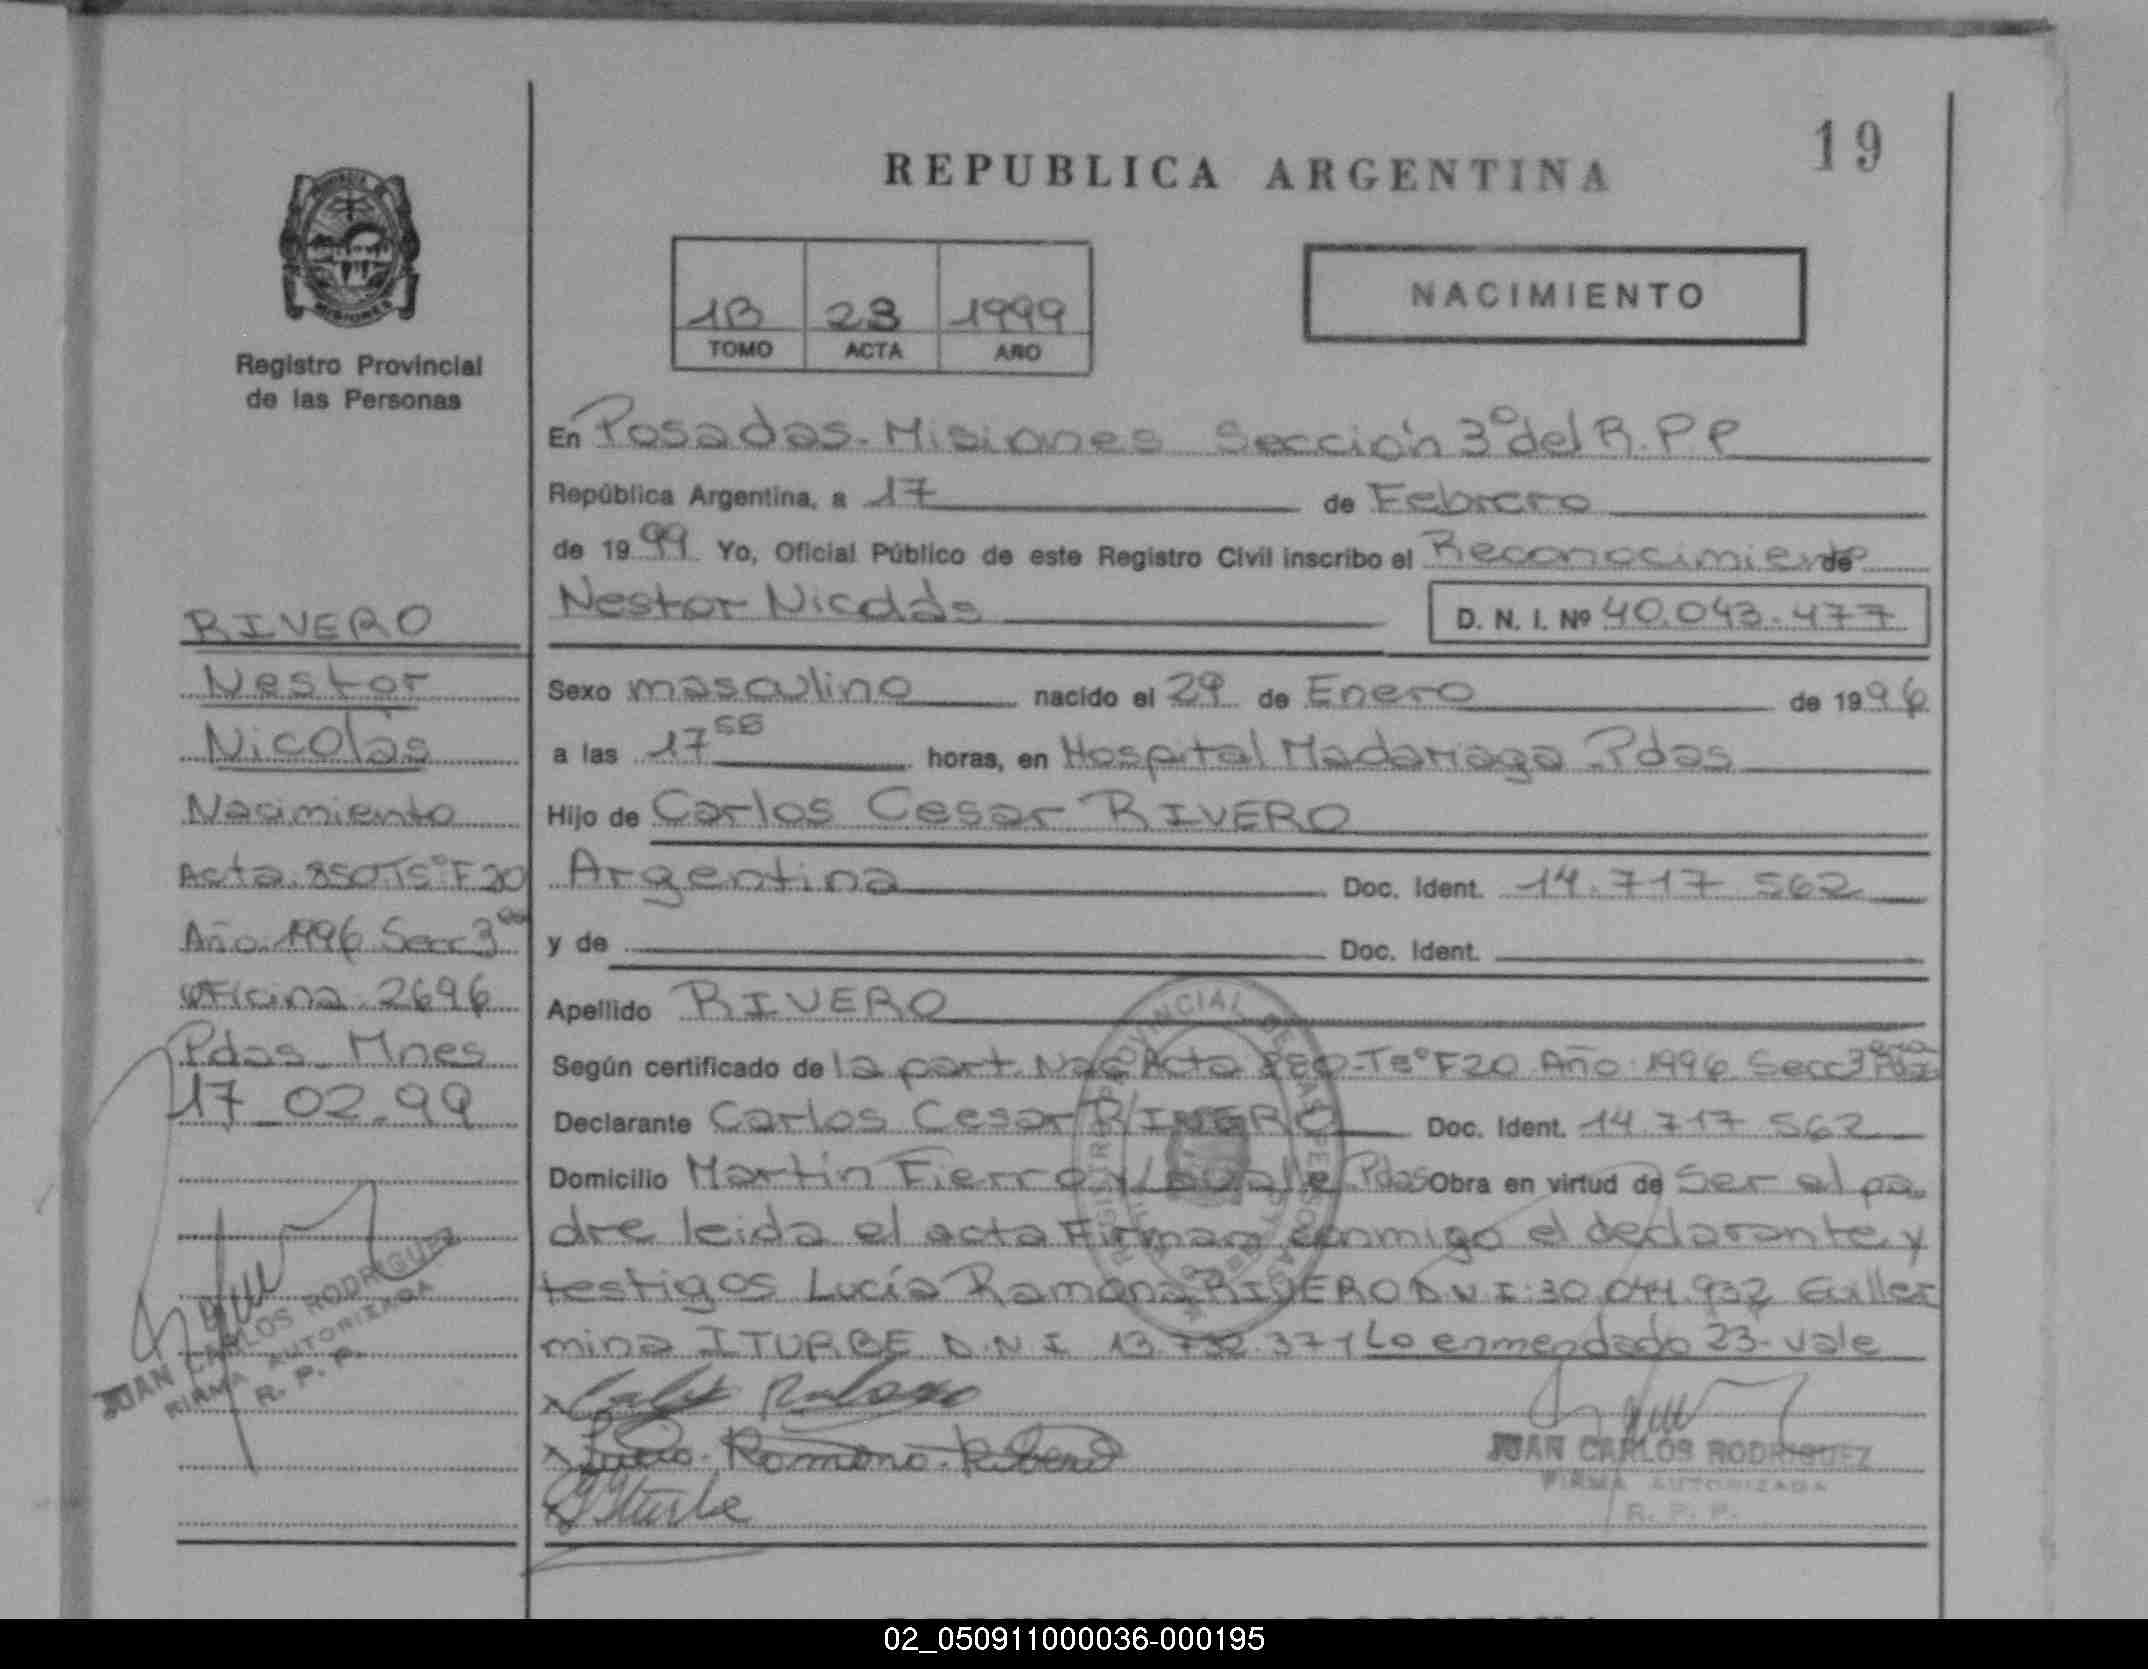 19
REPUBLICA ARGENTINA
NACIMIENTO
1B 23 1999
TOMO ACTA AÑO
MISIONES
Registro Provincial
de las Personas
En Posadas-Misiones Sección 3º del R.P.P
República Argentina, a 17 de Febrero
de 1999 Yo, Oficial Público de este Registro Civil inscribo el Reconocimiento de
Nestor Nicolás D. N. I. Nº 40.043.477
Sexo masculino nacido el 29 de Enero de 1996
a las 17 horas, en Hospital Madariaga Pdas
Hijo de Carlos Cesar RIVERO
Argentina Doc. Ident. 14.717 562
y de Doc. Ident.
Apellido RIVERO
Según certificado de la part. Nac Acta F20 Año 1996 Secc 3
Declarante Carlos Cesar RIVERO Doc. Ident. 14 717 562
Domicilio Martín Fierro y Lavalle Pdas Obra en virtud de Ser el pa-
dre leida el acta Firman conmigo el declarante y
testigos Lucía Ramona RIVERO D N I 30.044.932 Guiller
mina ITURBE D.N.I 13.732.371 Lo enmendado 23-vale
RIVERO
Nestor
Nicolàs
Nacimiento
Acta 850 T5º F20
Año 1996 Secc 3
Oficina 2696
Pdas Mnes
17_02.99
JUAN CARLOS RODRIGUEZ
FIRMA AUTORIZADA
R. P. P.
JUAN CARLOS RODRIGUEZ
FIRMA AUTORIZADA
R. P. P.
02_050911000036-000195